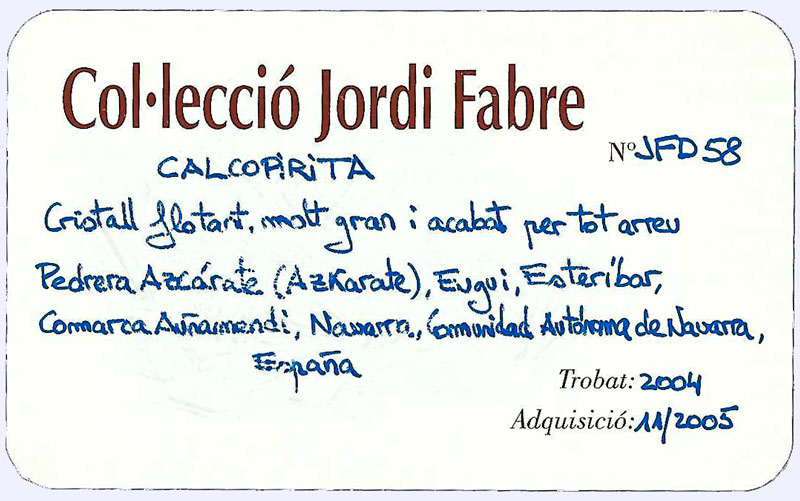 Col·lecció Jordi Fabre
Nº JFD58
CALCOPIRITA
Cristall flotant, molt gran i acabat per tot arreu
Pedrera Azcárate (Azkarate), Eugui, Esteríbar,
Comarca Auñamendi, Navarra, Comunidad Autónoma de Navarra,
España
Trobat: 2004
Adquisició: 11/2005